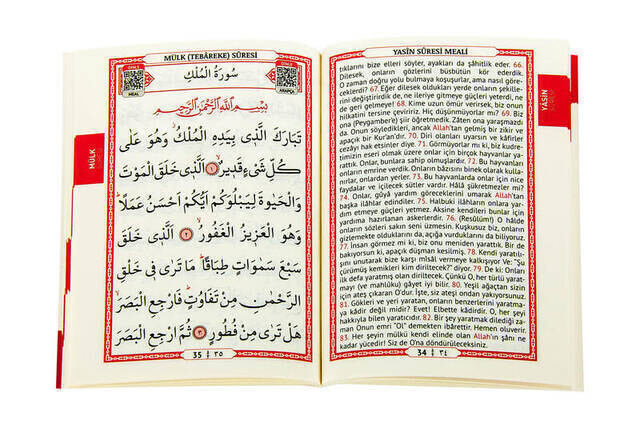 YASİN SÛRESİ MEALİ
tıklarını bize elleri söyler, ayakları da şâhitlik eder. 66.
Dilesek, onların gözlerini büsbütün kör ederdik.
O zaman doğru yolu bulmaya koşuşurlar, ama nasıl göre-
ceklerdi? 67. Eğer dilesek oldukları yerde onların şekille-
rini değiştirirdik de, ne ileriye gitmeye güçleri yeterdi, ne
de geri gelmeye! 68. Kime uzun ömür verirsek, biz onun
hilkatini tersine çeviririz. Hiç düşünmüyorlar mı? 69. Biz
ona (Peygamber'e) şiir öğretmedik. Zâten ona yaraşmazdı
da. Onun söyledikleri, ancak Allah'tan gelmiş bir zikir ve
apaçık bir Kur'an'dır. 70. Diri olanları uyarsın ve kâfirler
cezâyı hak etsinler diye. 71. Görmüyorlar mı ki, biz kudre-
timizin eseri olmak üzere onlar için birçok hayvanlar ya-
rattık. Onlar, bunlara sahip olmuşlardır. 72. Bu hayvanları
onların emrine verdik. Onların bâzısını binek olarak kulla-
nırlar, onlardan yerler. 73. Bu hayvanlarda onlar için nice
faydalar ve içilecek sütler vardır. Hâlâ şükretmezler mi?
74. Onlar, gûyâ yardım göreceklerini umarak Allah'tan
başka ilâhlar edindiler. 75. Halbuki ilâhların onlara yar-
dım etmeye güçleri yetmez. Aksine kendileri bunlar için
yardıma hazırlanan askerlerdir. 76. (Resûlüm!) O hâlde
onların sözleri sakın seni üzmesin. Kuşkusuz biz, onların
gizlemekte olduklarını da, açığa vurduklarını da biliyoruz.
77. İnsan görmez mi ki, biz onu meniden yarattık. Bir de
bakıyorsun ki, apaçık düşman kesilmiş. 78. Kendi yaratılı-
şını unutarak bize karşı misâl vermeye kalkışıyor Ve: "Şu
çürümüş kemikleri kim diriltecek?" diyor. 79. De ki: Onları
ilk defa yaratmış olan diriltecek. Çünkü O, her türlü yarat-
mayı (ve mahlûku) gâyet iyi bilir. 80. Yeşil ağaçtan sizin
için ateş çıkaran O'dur. İşte, siz ateşi ondan yakıyorsunuz.
81. Gökleri ve yeri yaratan, onların benzerlerini yaratma-
ya kâdir değil midir? Evet! Elbette kâdirdir. O, her şeyi
hakkıyla bilen yaratıcıdır. 82. Bir şey yaratmak dilediği za-
man Onun emri "Ol" demekten ibârettir. Hemen oluverir.
83. Her şeyin mülkü kendi elinde olan Allah'ın şânı ne
kadar yücedir! Siz de O'na döndürüleceksiniz.
34 ٣٤
YASİN
MÜLK (TEBÂREKE) SÛRESİ
سُورَةُ الْمُلْكِ
MEAL
ARAPÇA
بِسْمِ اللّٰهِ الرَّحْمٰنِ الرَّحِيمِ
تَبَارَكَ الَّذِي بِيَدِهِ الْمُلْكُ وَهُوَ عَلٰى
كُلِّ شَيْءٍ قَدِيرٌ ١ اَلَّذِي خَلَقَ الْمَوْتَ
وَالْحَيٰوةَ لِيَبْلُوَكُمْ اَيُّكُمْ اَحْسَنُ عَمَلًا
وَهُوَ الْعَزِيزُ الْغَفُورُ ٢ اَلَّذِي خَلَقَ
سَبْعَ سَمٰوَاتٍ طِبَاقًا مَا تَرٰى فِي خَلْقِ
الرَّحْمٰنِ مِنْ تَفَاوُتٍ فَارْجِعِ الْبَصَرَ
هَلْ تَرٰى مِنْ فُطُورٍ ٣ ثُمَّ ارْجِعِ الْبَصَرَ
35 ٣٥
MÜLK